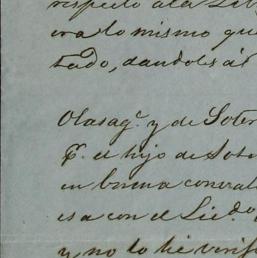 respecto a la Lib
era lo mismo que
tado, dandoles á
Olasagª. y de Soter
P. el hijo de Sote
en buena
esa con el Licdo.
y no lo hé verifi